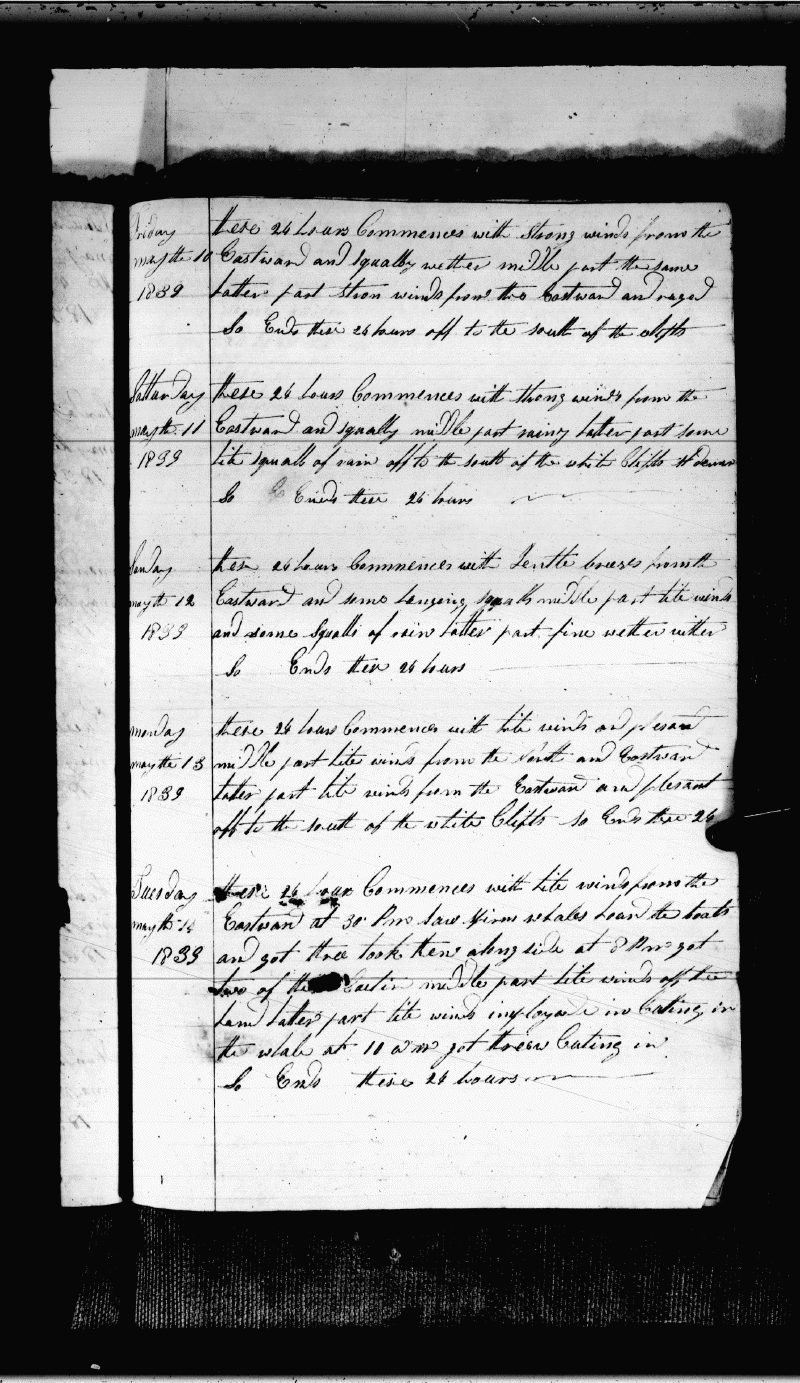 Friday these 24 hours Commences with strong winds from the
may the 10 Eastward and squally wether middle part the same
1839 latter part stron winds from the Eastward and
So Ends these 24 hours off to the south of the clifts
Satturday these 24 hours Commences with strong winds from the
may the 11 Eastward and squally middle part rainy latter part some
1839 lite squalls of rain off to the south of the white Clifts
So Ends these 24 hours
Sunday these 24 hours Commences with Jentle breezes from the
may the 12 Eastward and some squalls middle part lite winds
1839 and some squalls of rain latter part fine wether
So Ends these 24 hours
monday these 24 hours Commences with lite winds and plesant
may the 13 middle part lite winds from the North and Eastward
1839 latter part lite winds from the Eastward and plesant
off to the south of the white Clifts so Ends these 24
Tuesday these 24 hours Commences with lite winds from the
may the 14 Eastward at 30 Pm saw whales the boats
1839 and got three took them along side at 8 Pm got
two of the middle part lite winds off the
land latter part lite winds imployde in Cuting in
the whale at 10 a m got threw Cuting in
So Ends these 24 hours